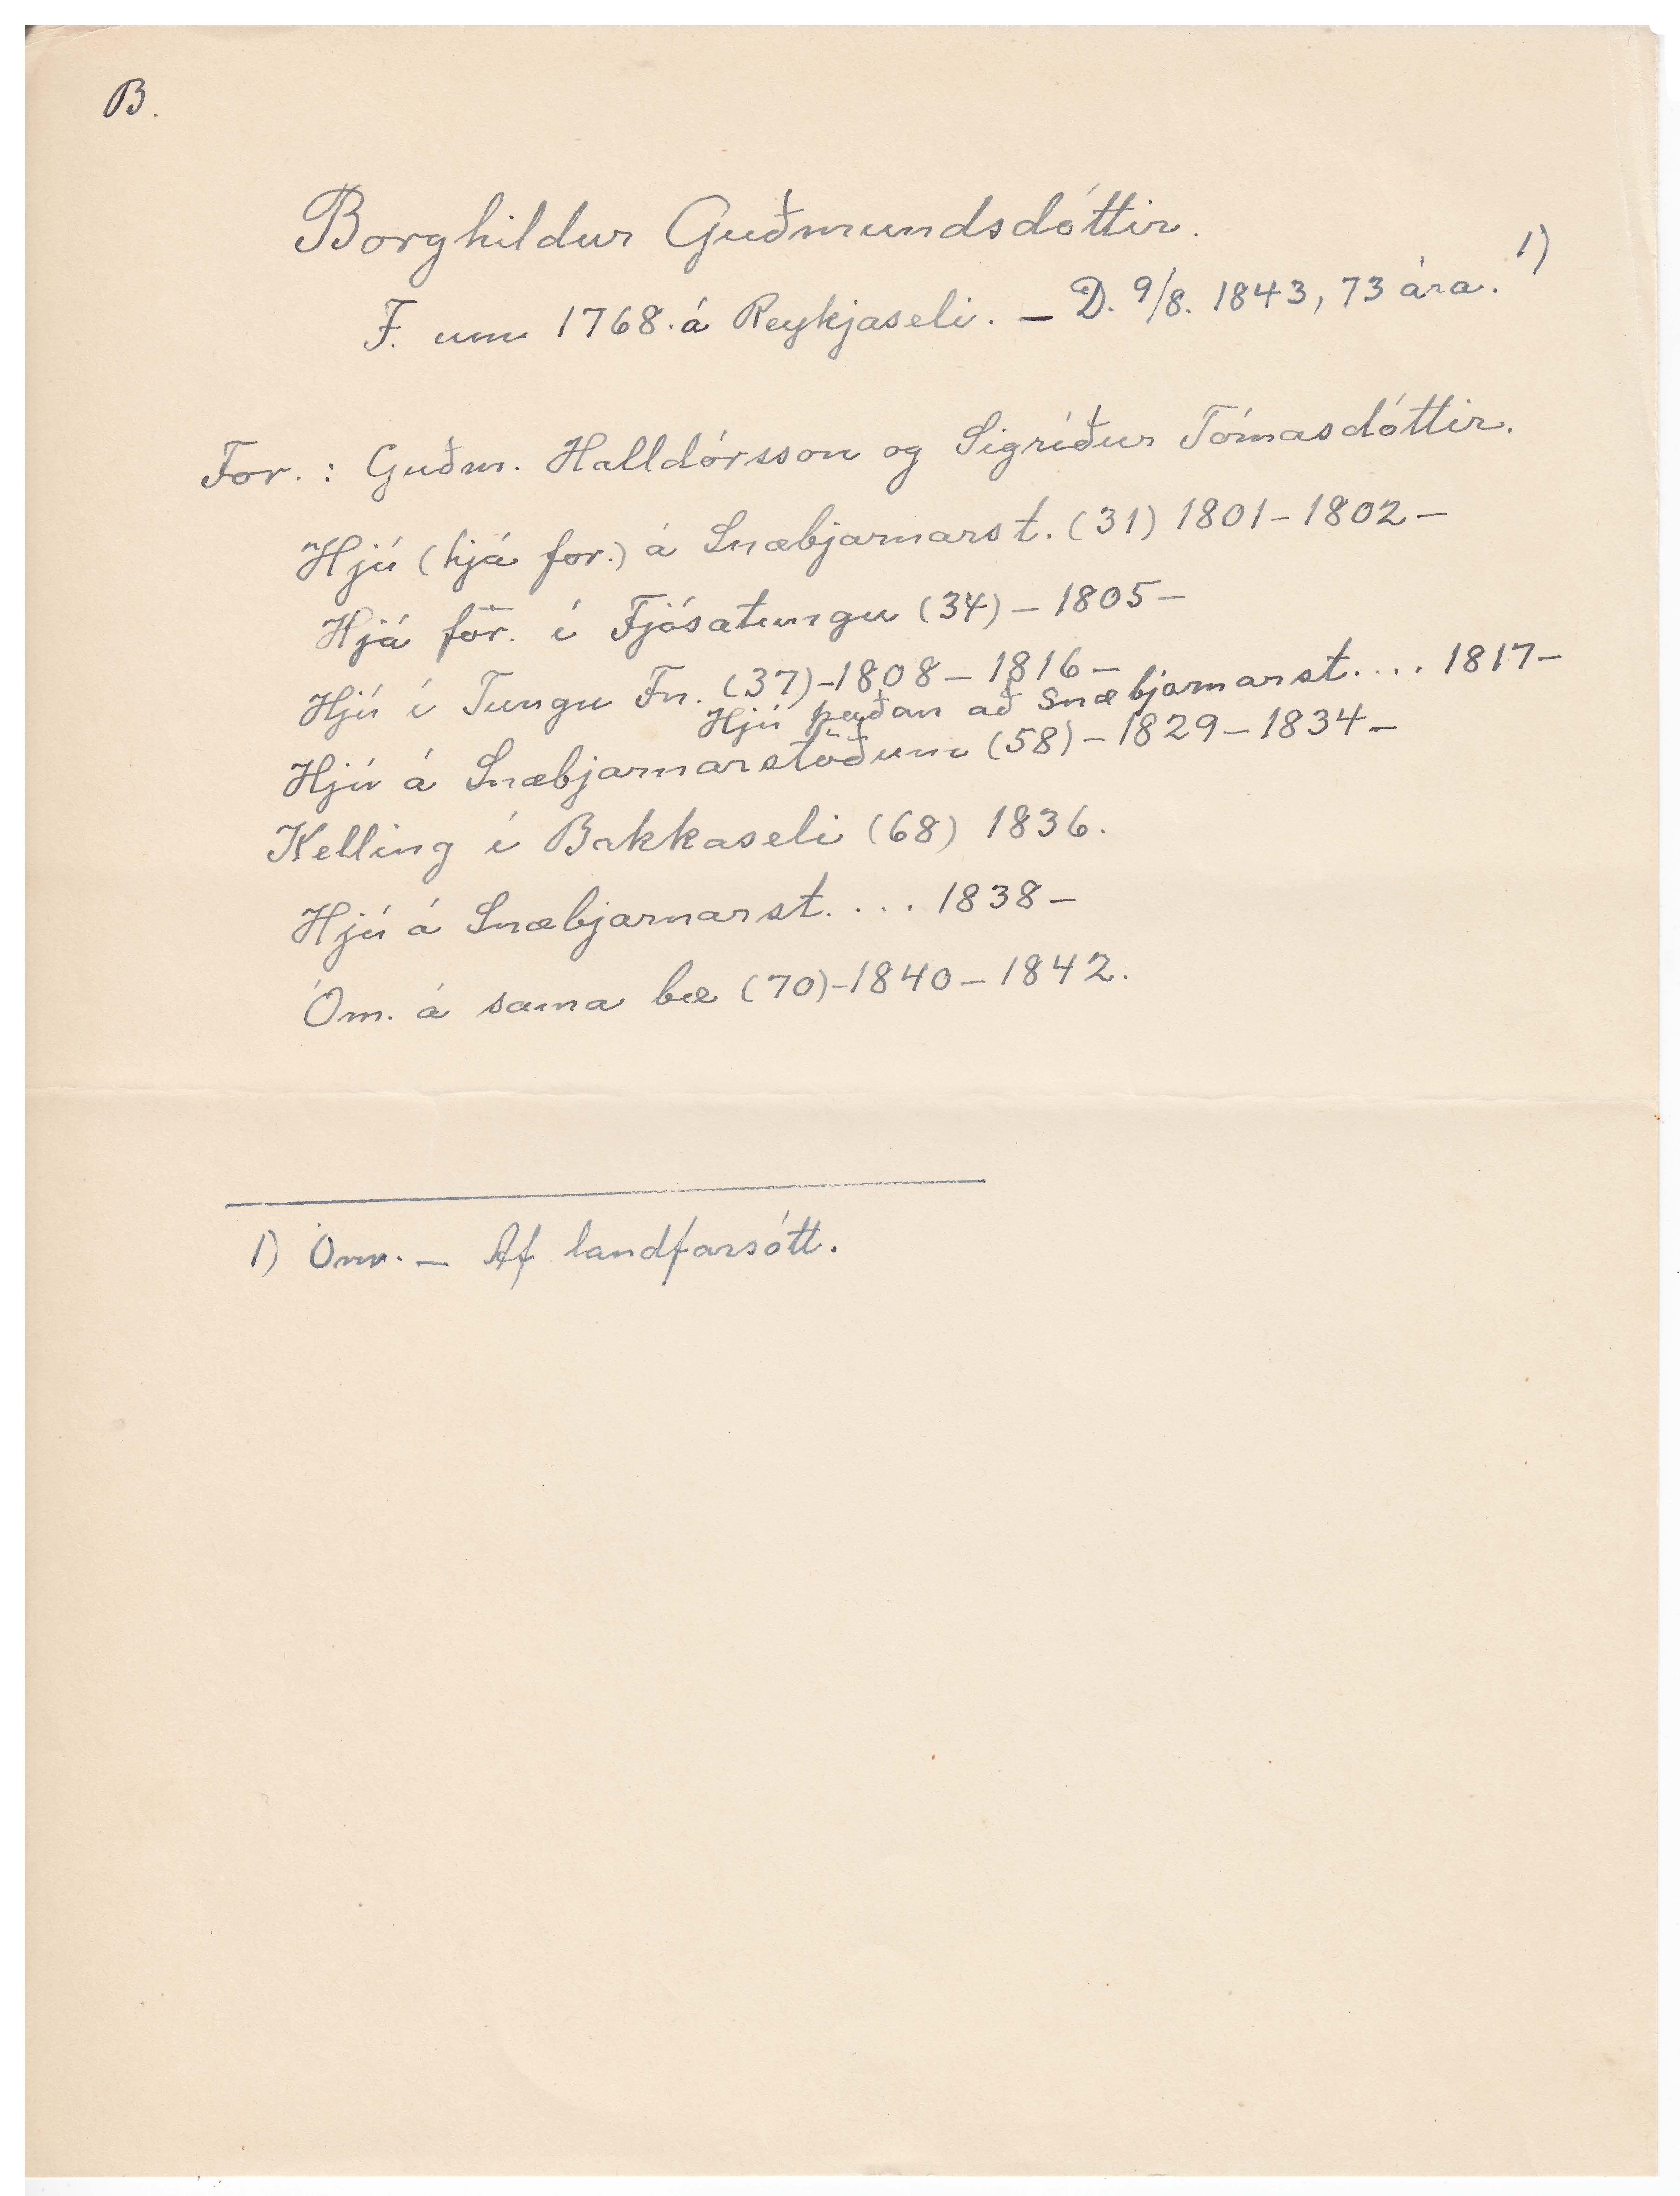 B.
Borghildur Guðmundsdóttir.
F. um 1768 á Reykjaseli. – D. 9/8. 1843, 73 ára. 1)
For.: Guðm. Halldórsson og Sigríður Tómasdóttir.
Hjú (hjá for.) á Snæbjarnarst. (31) 1801–1802–
Hjá for. í Fjósatungu (34) – 1805 –
Hjú í Tungu Fn. (37) – 1808 – 1816 –
Hjú þaðan að Snæbjarnarst. ... 1817–
Hjú á Snæbjarnarstöðum (58) – 1829 – 1834 –
Kelling í Bakkaseli (68) 1836.
Hjú á Snæbjarnarst. ... 1838 –
Óm. á sama bæ (70) – 1840 – 1842.
1) Óm. – Af landfarsótt.